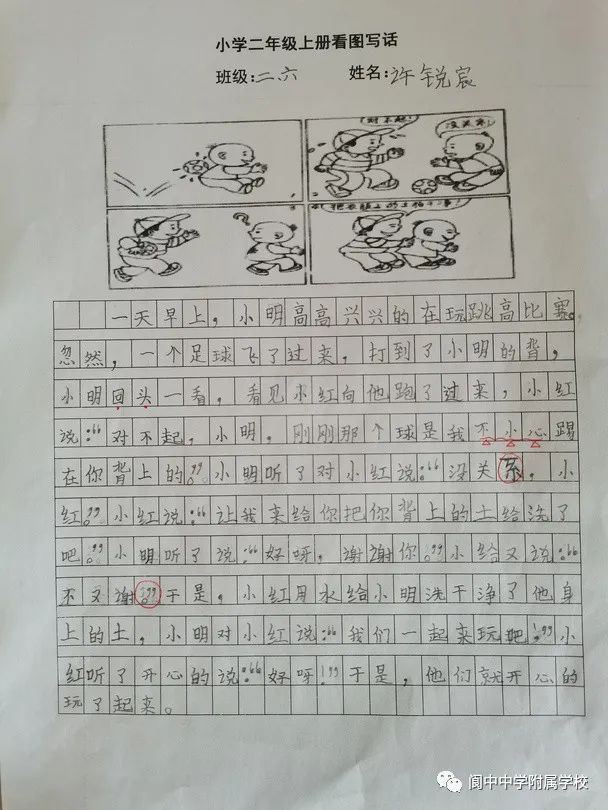 小学二年级上册看图写话
班级:二六 姓名:许锐宸
对不起!
没关系!
?
把衣服上的土拍干净!
一天早上，小明高高兴兴的在玩跳高比赛。
忽然，一个足球飞了过来，打到了小明的背，
小明回头一看，看见小红向他跑了过来，小红
说：“对不起，小明，刚刚那个球是我不小心踢
在你背上的。”小明听了对小红说：“没关系，小
红。”小红说：“让我来给你把你背上的土给洗了
吧。”小明听了说：“好呀，谢谢你。”小给又说：“
不又谢。”于是，小红用水给小明洗干净了他身
上的土，小明对小红说：“我们一起来玩吧！”小
红听了开心的说：“好呀！”于是，他们就开心的
玩了起来。
阆中中学附属学校